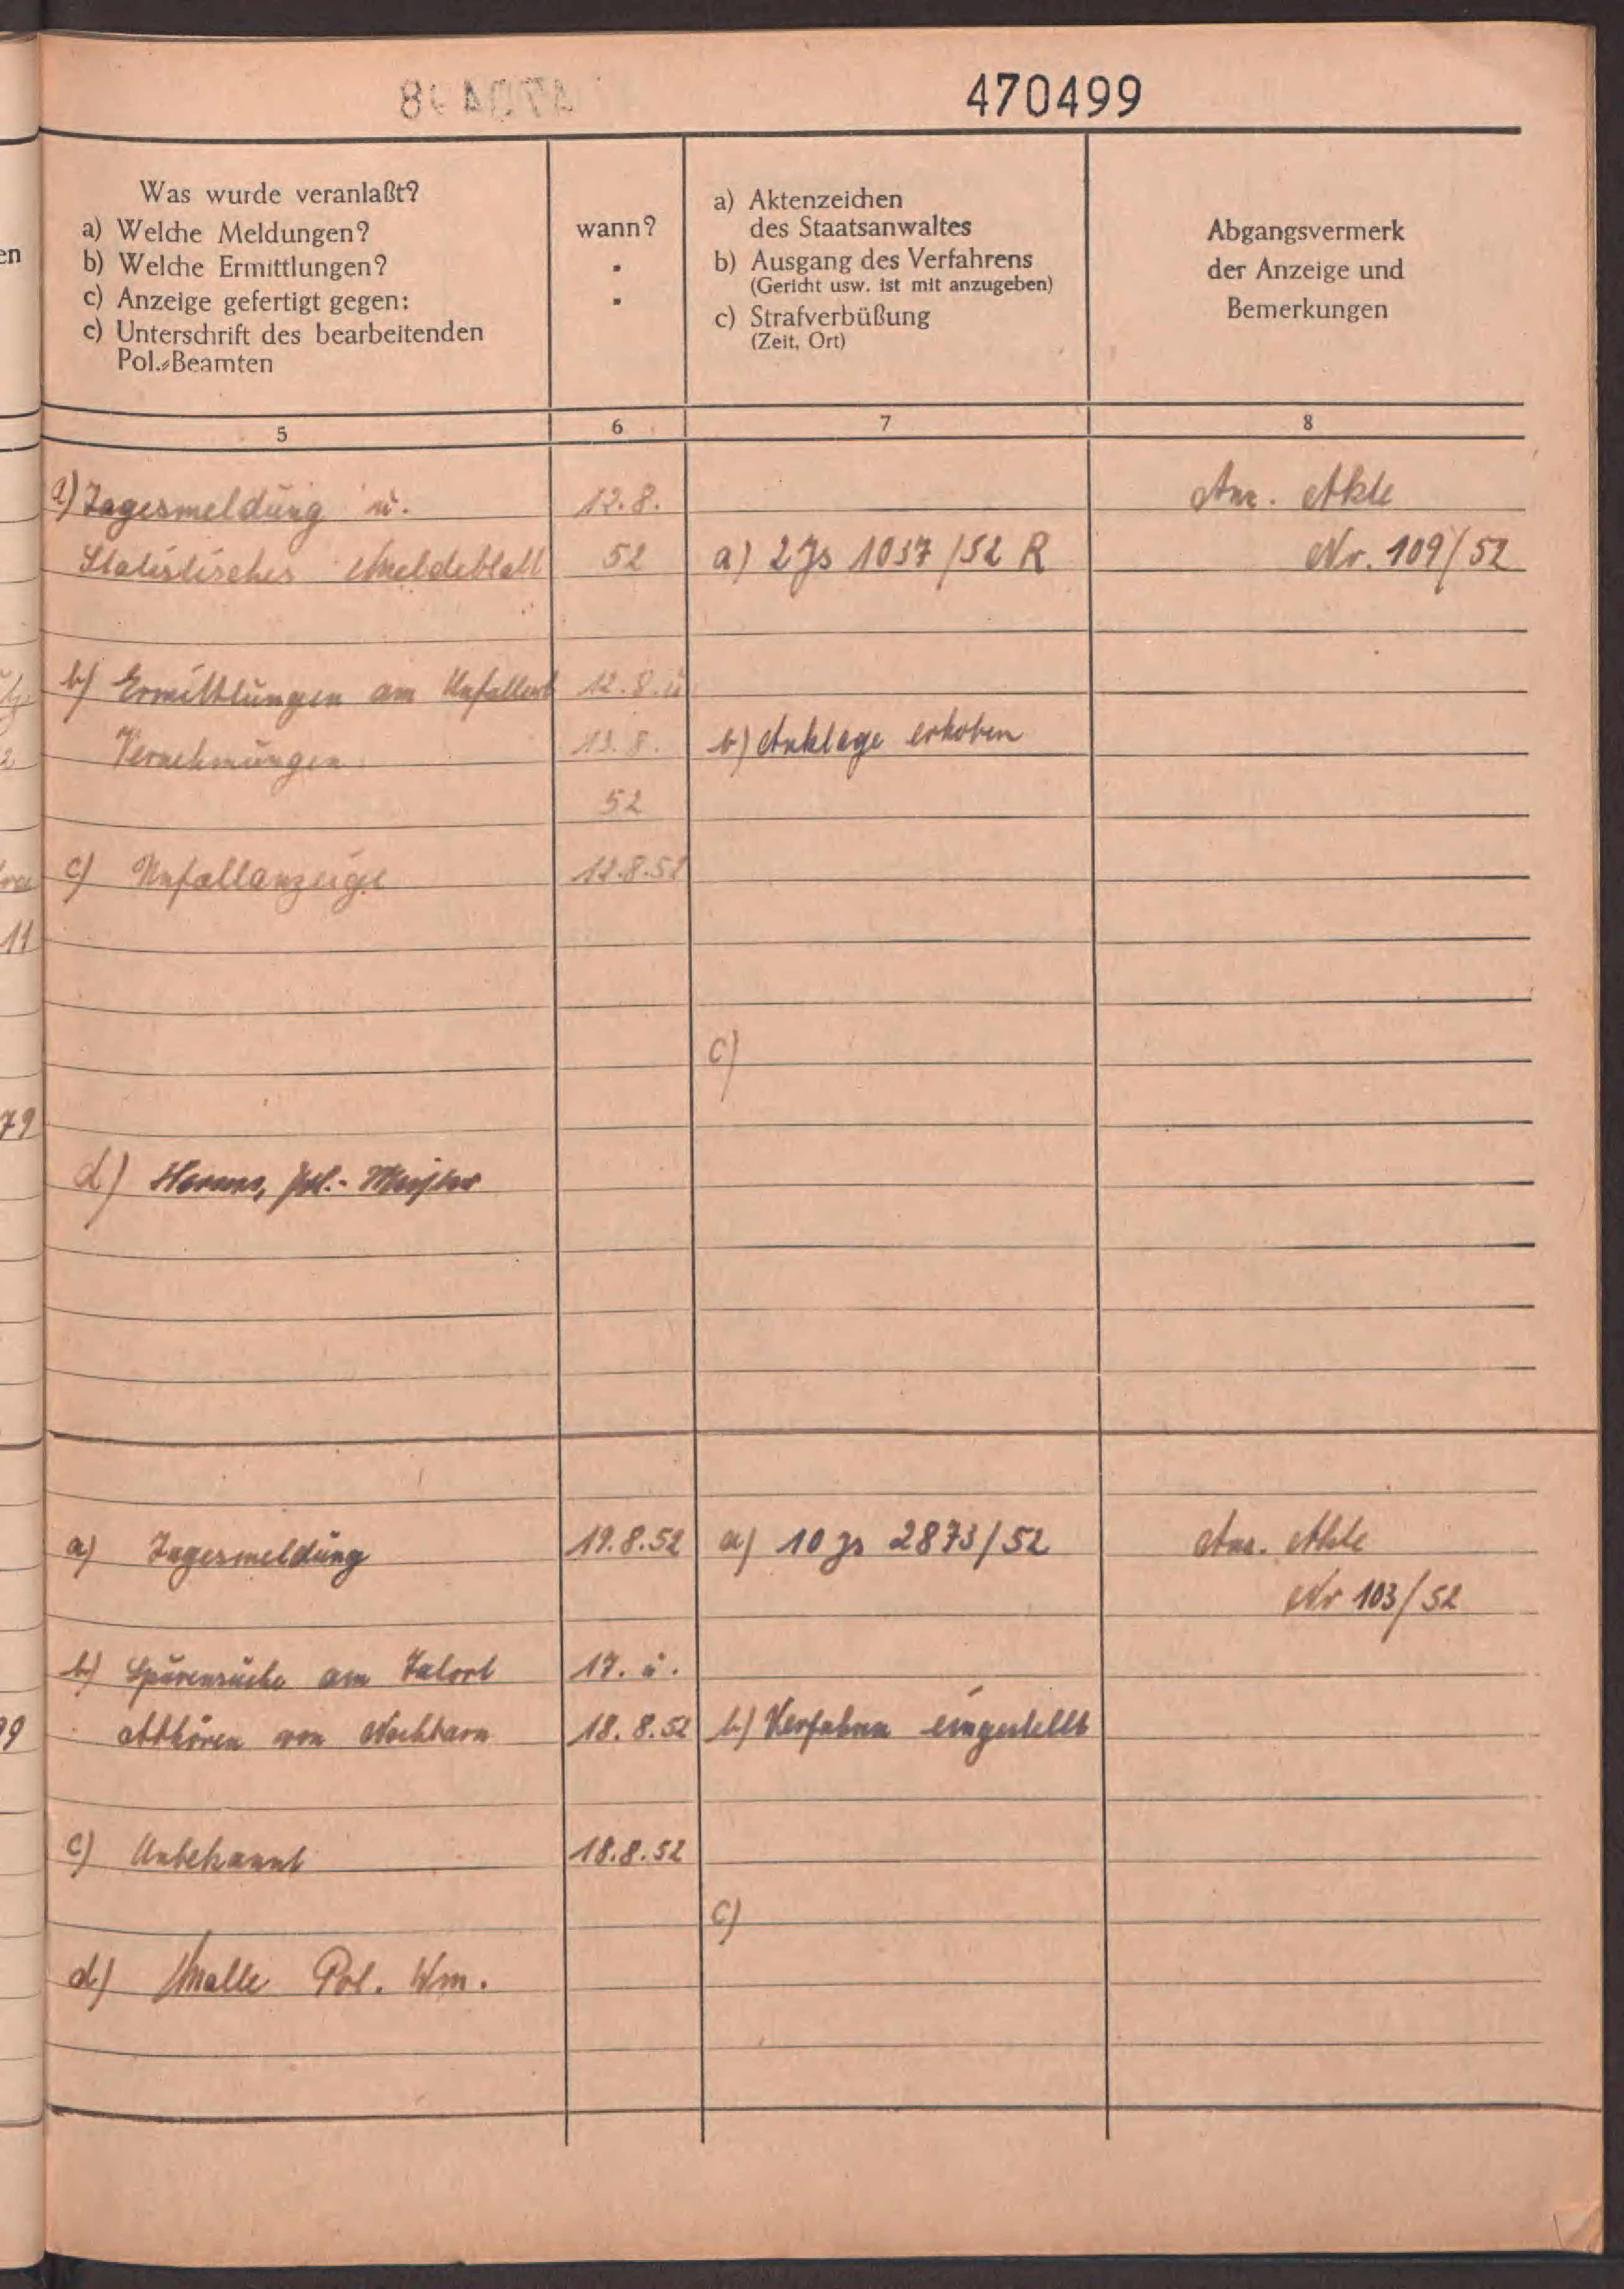 470499
Was wurde veranlaßt?
a) Welche Meldungen?
b) Welche Ermittlungen?
c) Anzeige gefertigt gegen:
c) Unterschrift des bearbeitenden
Pol.-Beamten
wann?
a) Aktenzeichen
des Staatsanwaltes
b) Ausgang des Verfahrens
(Gericht usw. ist mit anzugeben)
c) Strafverbüßung
(Zeit, Ort)
Abgangsvermerk
der Anzeige und
Bemerkungen
5 6 7 8
a) Tagesmeldung u. 12.8. Anz. Akte
Statistisches Meldeblatt 52 a) 2 Js 1037/52 R Nr. 109/52
b) Ermittlungen am Unfallort 12.8. u
Vernehmungen 13.8. b) Anklage erhoben
52
c) Unfallanzeige 12.8.52
c)
d) Pol.-Meister
a) Tagesmeldung 19.8.52 a) 10 Js 2873/52 Anz. Akte
Nr 103/52
b) Spurensuche am Tatort 17. u.
Abhören von Nachbarn 18.8.52 b) Verfahren eingestellt
c) Unbekannt 18.8.52
c)
d) Pol. Wm.